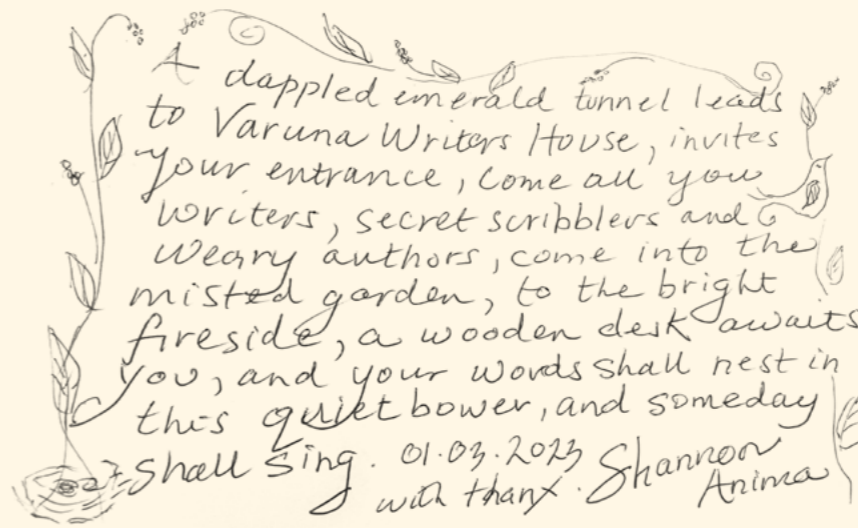 A dappled emerald tunnel leads
to Varuna Writers House, invites
your entrance, come all you
writers, secret scribblers and
weary authors, come into the
misted garden, to the bright
fireside, a wooden desk awaits
you, and your words shall nest in
this quiet bower, and someday
shall sing. 01.03.2023 Shannon
with thanx. Anima